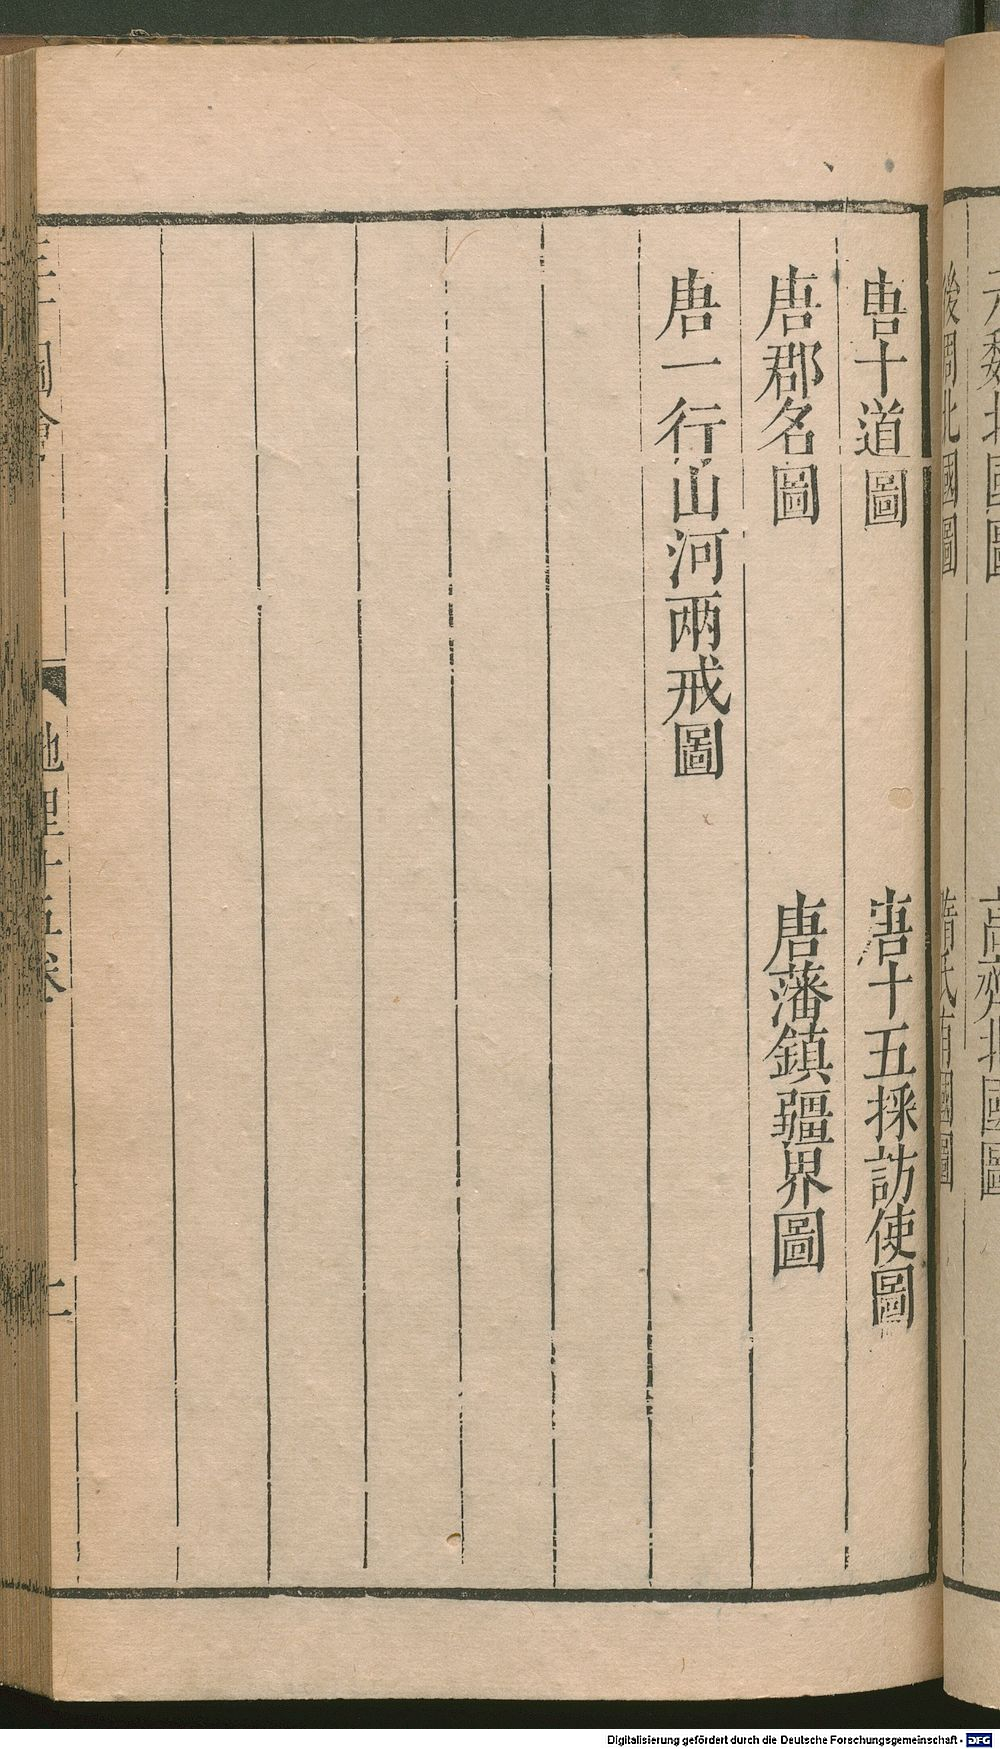 元魏北國圖
高齊北國圖
後周北國圖
隋氏有國圖
唐十道圖
唐十五採訪使圖
唐郡名圖
唐藩鎮疆界圖
唐一行山河兩戒圖
三才圖會
地理十五卷
二
Digitalisierung gefördert durch die Deutsche Forschungsgemeinschaft - DFG